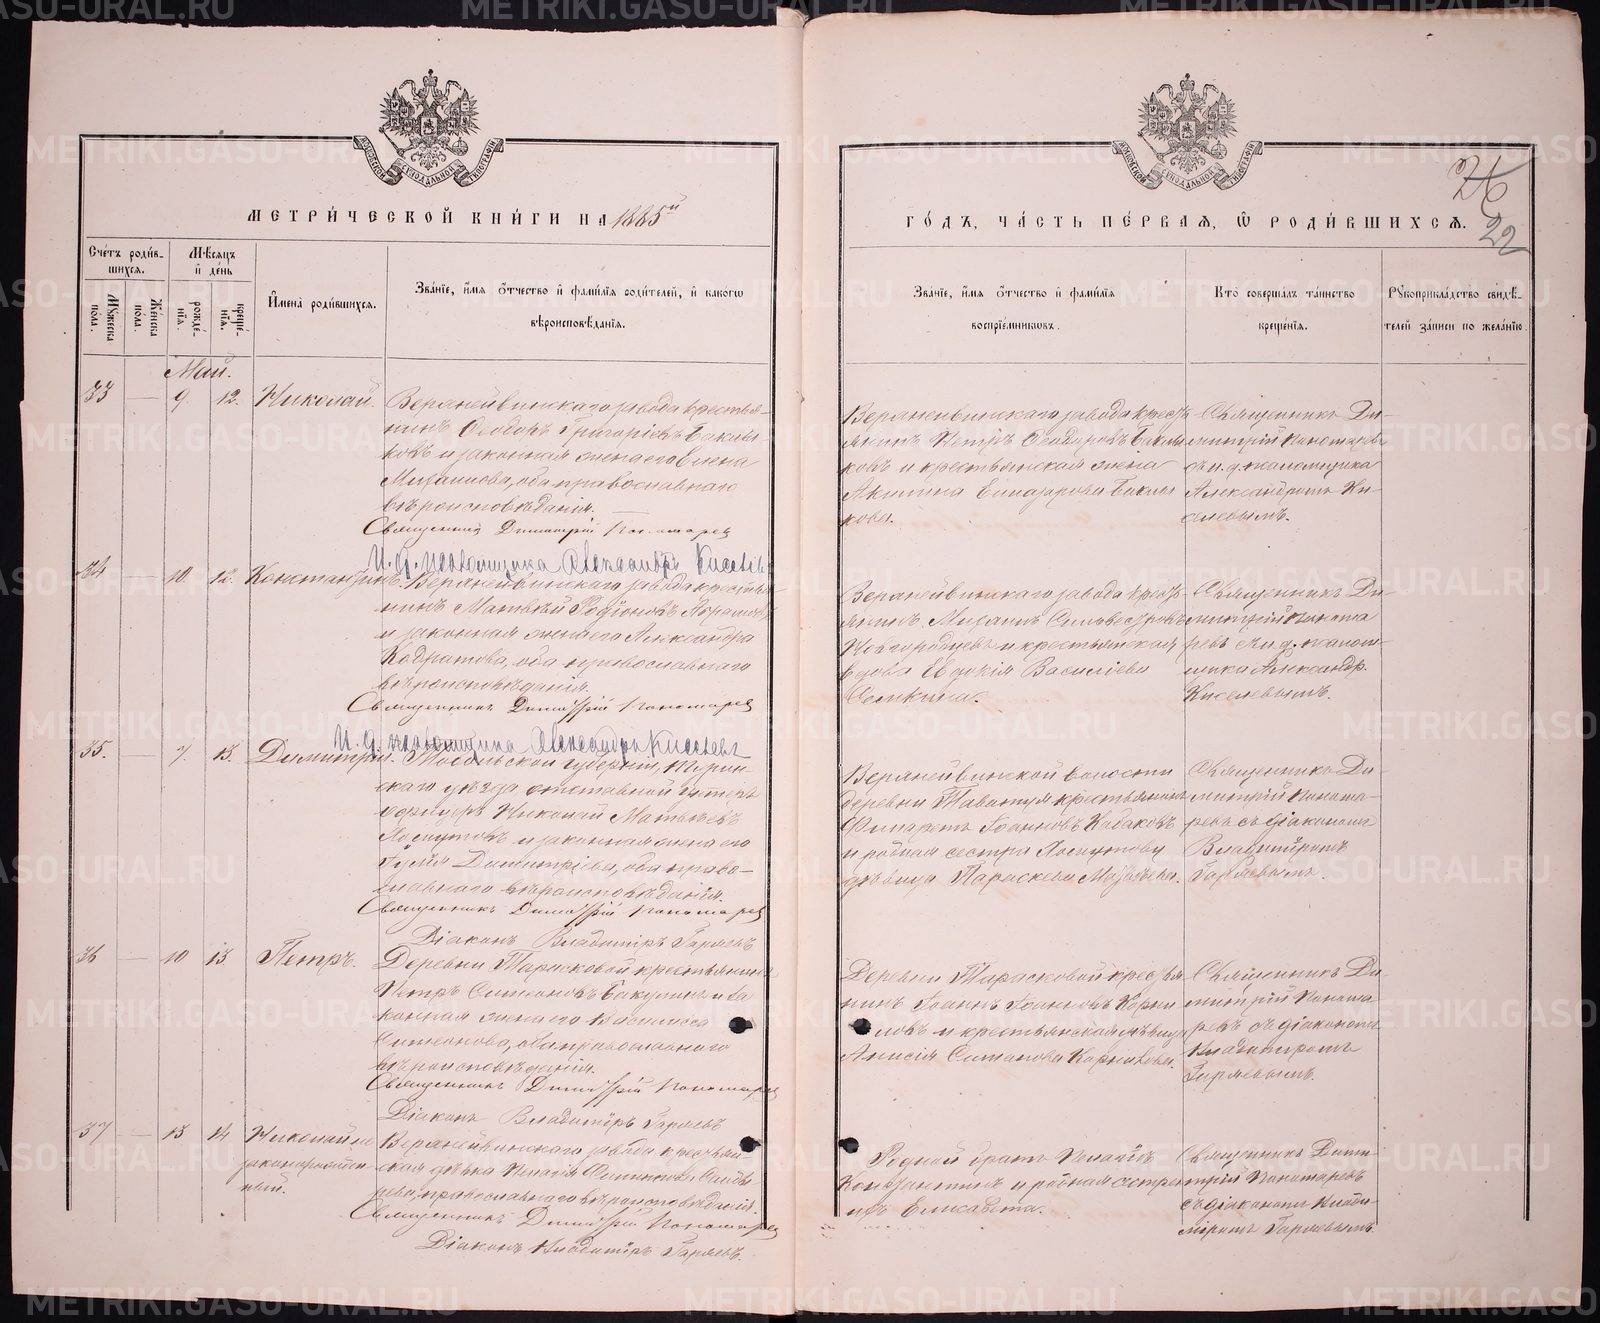 МЕТРИ́ЧЕСКОЙ КНИ́ГИ НА 1885й
ГО́ДЪ, ЧА́СТЬ ПЕ́РВАѦ, Ѡ РОДИ́ВШИХСѦ.
26
22
Сче́тъ роди́вшихсѧ.
Мꙋ́жеска пола.
Же́нска по́ла.
Мѣ́сѧцъ и де́нь
рожде́нїѧ.
креще́нїѧ.
И҆мена̀ роди́вшихсѧ.
Зва́нїе, и҆́мѧ ѻ҆́тчество и҆ фами́лїѧ родителей, и҆ какогѡ
вѣроисповѣ́данїѧ.
Зва́нїе, и҆́мѧ ѻ҆́тчество и҆ фами́лїѧ
воспрїе́мникѡвъ.
Кто̀ соверша́лъ та́инство
креще́нїѧ.
Рꙋкоприкла́дство свидѣ́телей за́писи по жела́нїю.
Май.
33 — 9. 12. Николай.
Верхнейвинскаго завода крестья-
нинъ Ѳеодоръ Григоріевъ
ковъ и законная жена его
оба православнаго
вѣроисповѣданія.
Священникъ Димитрій Пономарев
И. д. псаломщика Александръ Киселевъ
Верхнейвинскаго завода крестья-
нинъ Петръ Ѳеодоровъ
ковъ и крестьянская жена
Акилина
кова.
Священникъ Ди-
митрій Пономаревъ
съ и. д. псаломщика
Александромъ Ки-
селевымъ.
34 — 10. 12. Константинъ.
Верхнейвинскаго завода крестья-
нинъ Матвѣй Родіоновъ
и законная жена его Александра
Кодратова, оба православнаго
вѣроисповѣданія.
Священникъ Димитрій Пономарев
И. д. псаломщика Александръ Киселевъ
Верхнейвинскаго завода крестья-
нинъ Михаилъ Сильвестровъ
Новгородцевъ и крестьянская
вдова Евдокія Василіева
Священникъ Ди-
митрій Понома
ревъ съ и. д. псалом-
щика Александр.
Киселевымъ.
35. — 7. 13. Димитрій.
Тобольской губерніи, Турин-
скаго уѣзда отставной унтеръ
офицеръ Николай Матвѣевъ
Лоскутовъ и законная жена его
Юлія Димитріева, оба право-
славнаго вѣроисповѣданія.
Священникъ Димитрій Пономарев
Діаконъ Владиміръ Гаряевъ
Верхнейвинской волости
деревни Таватуя крестьянинъ
Филаретъ Іоанновъ Кабаковъ
и родная сестра Лоскутову
дѣвица Параскева Матвѣева.
Священникъ Ди-
митрій Понома-
ревъ съ діакономъ
Владиміромъ
Гаряевымъ.
36 — 10 13 Петръ.
Деревни Тарасковой крестьянинъ
Петръ Симеоновъ Бакулинъ и за
конная жена его Василисса
Симеонова, оба православнаго
вѣроисповѣданія.
Священникъ Димитрій Пономарев
Діаконъ Владиміръ Гаряевъ
Деревни Тарасковой крестья
нинъ Іоаннъ Іоанновъ Корни
ловъ и крестьянская дѣвица
Анисія Симеонова Корнилова.
Священникъ Ди-
митрій Понома
ревъ съ діакономъ
Владиміромъ
Гаряевымъ.
37 — 13 14 Николай не
законорожден
ный.
Верхнейвинскаго завода крестьян
ская дѣвка Пелагія
православнаго вѣроисповѣданія.
Священникъ Димитрій Пономарев
Діаконъ Владиміръ Гаряевъ.
Родной братъ Пелагіи
Константинъ и родная сестра
ихъ Елисавета.
Священникъ Дими-
трій Пономаревъ
съ діакономъ Влади-
міромъ Гаряевымъ.
METRIKI.GASO-URAL.RU